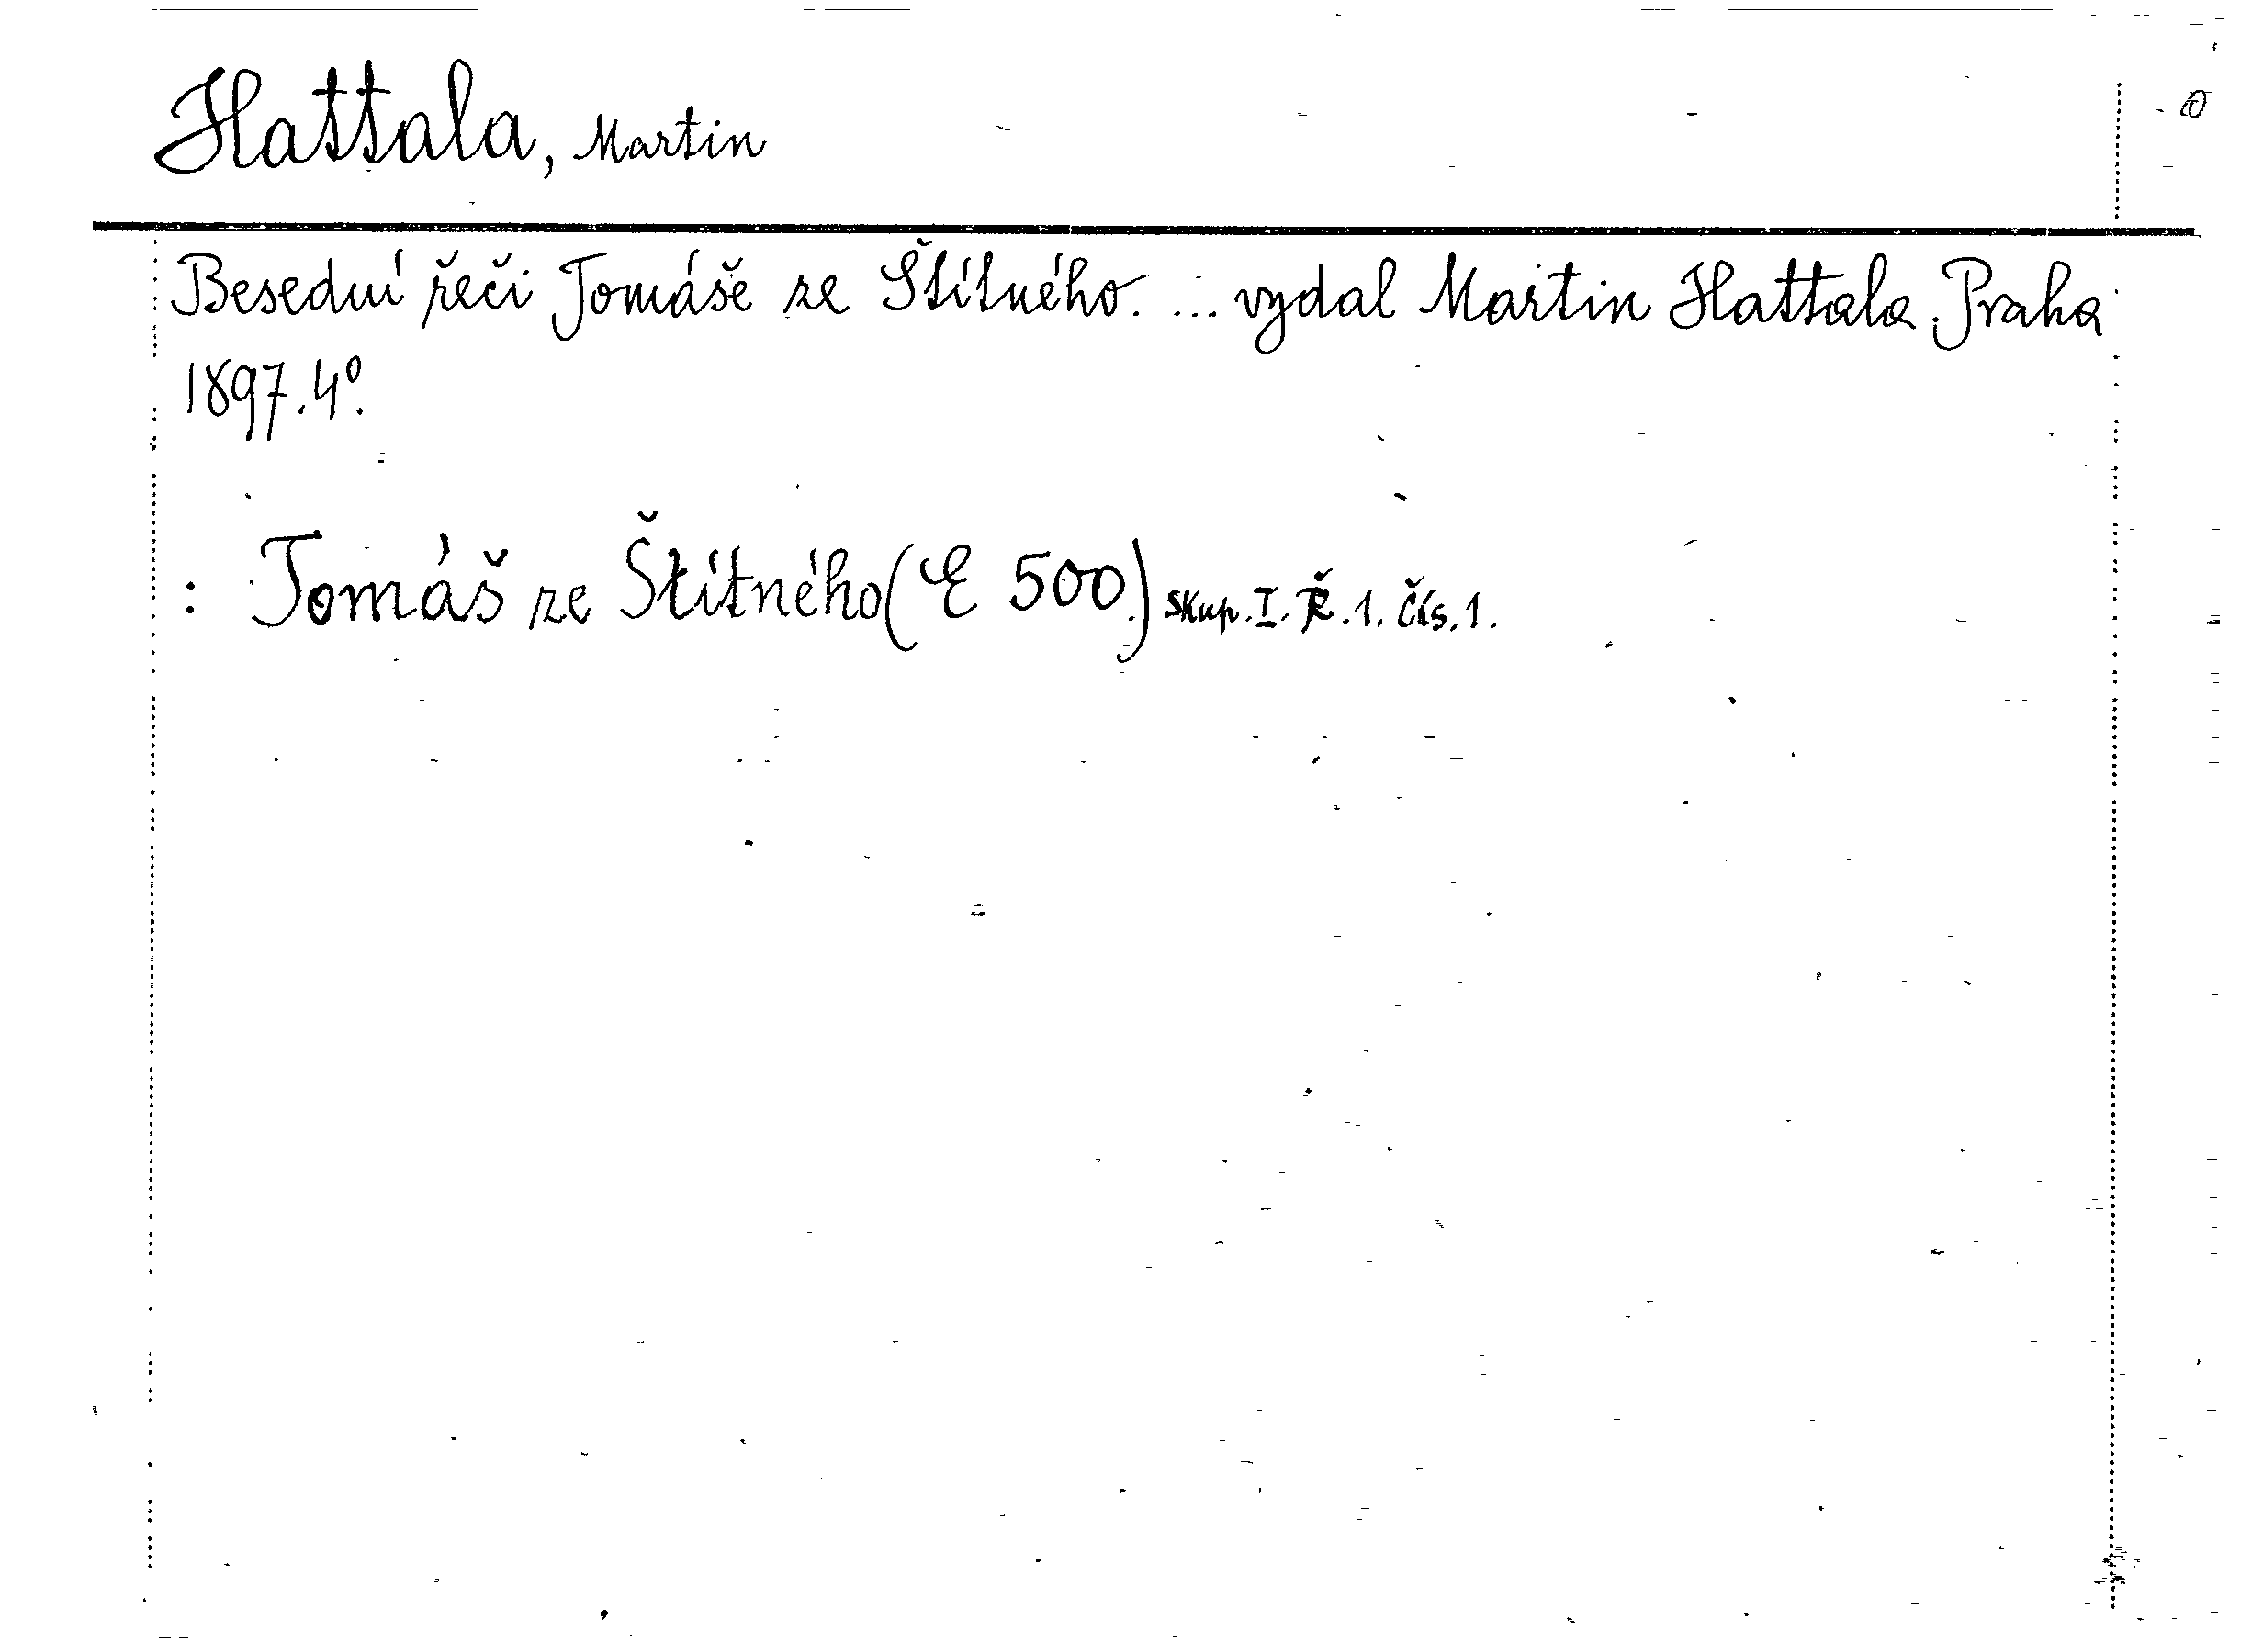 Hattala, Martin
Besední řeči Tomáše ze Štítného. ... vydal Martin Hattala. Praha
1897. 4°.
: Tomáš ze Štítného (E 500.) skup. I. Ř. 1. čís. 1.